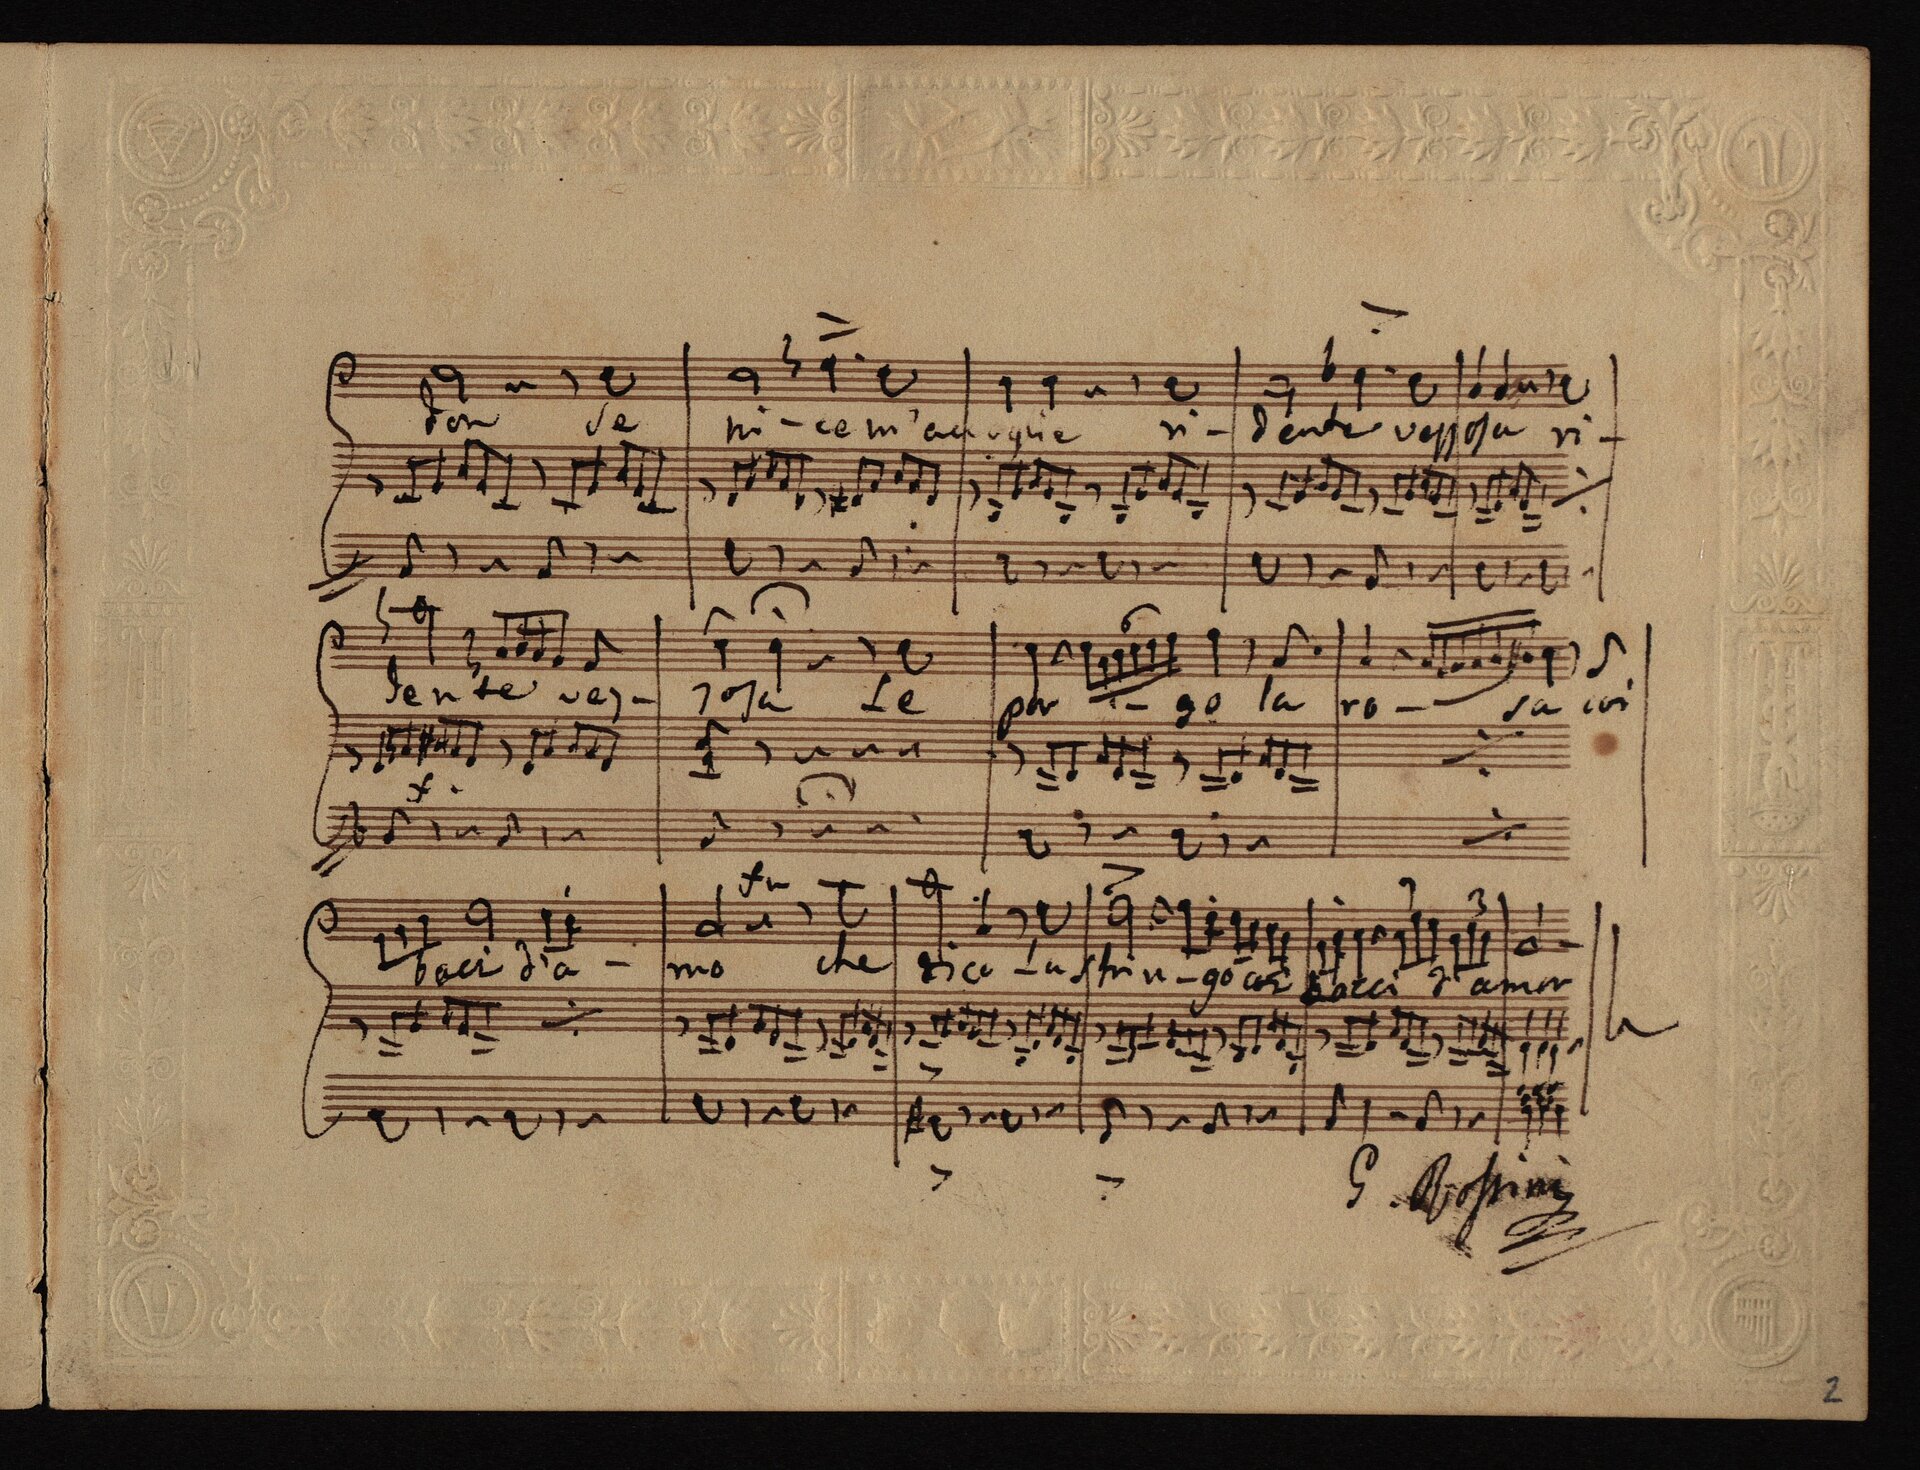 don se ni - ce m'accoglie ri - dente vezzosa ri -
dente vez - zosa Le por - - go la ro - - sa coi
baci d'a - mo che dico La strin - go coi bacci d'amor
G. Rossini
2